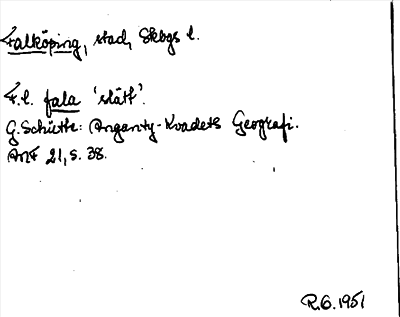 Falköping, stad, Skbgs l.
F.l. fala 'slätt'.
G. Schütte: Anganty-Kvadets Geografi.
ANF 21, s. 38.
R.G. 1951